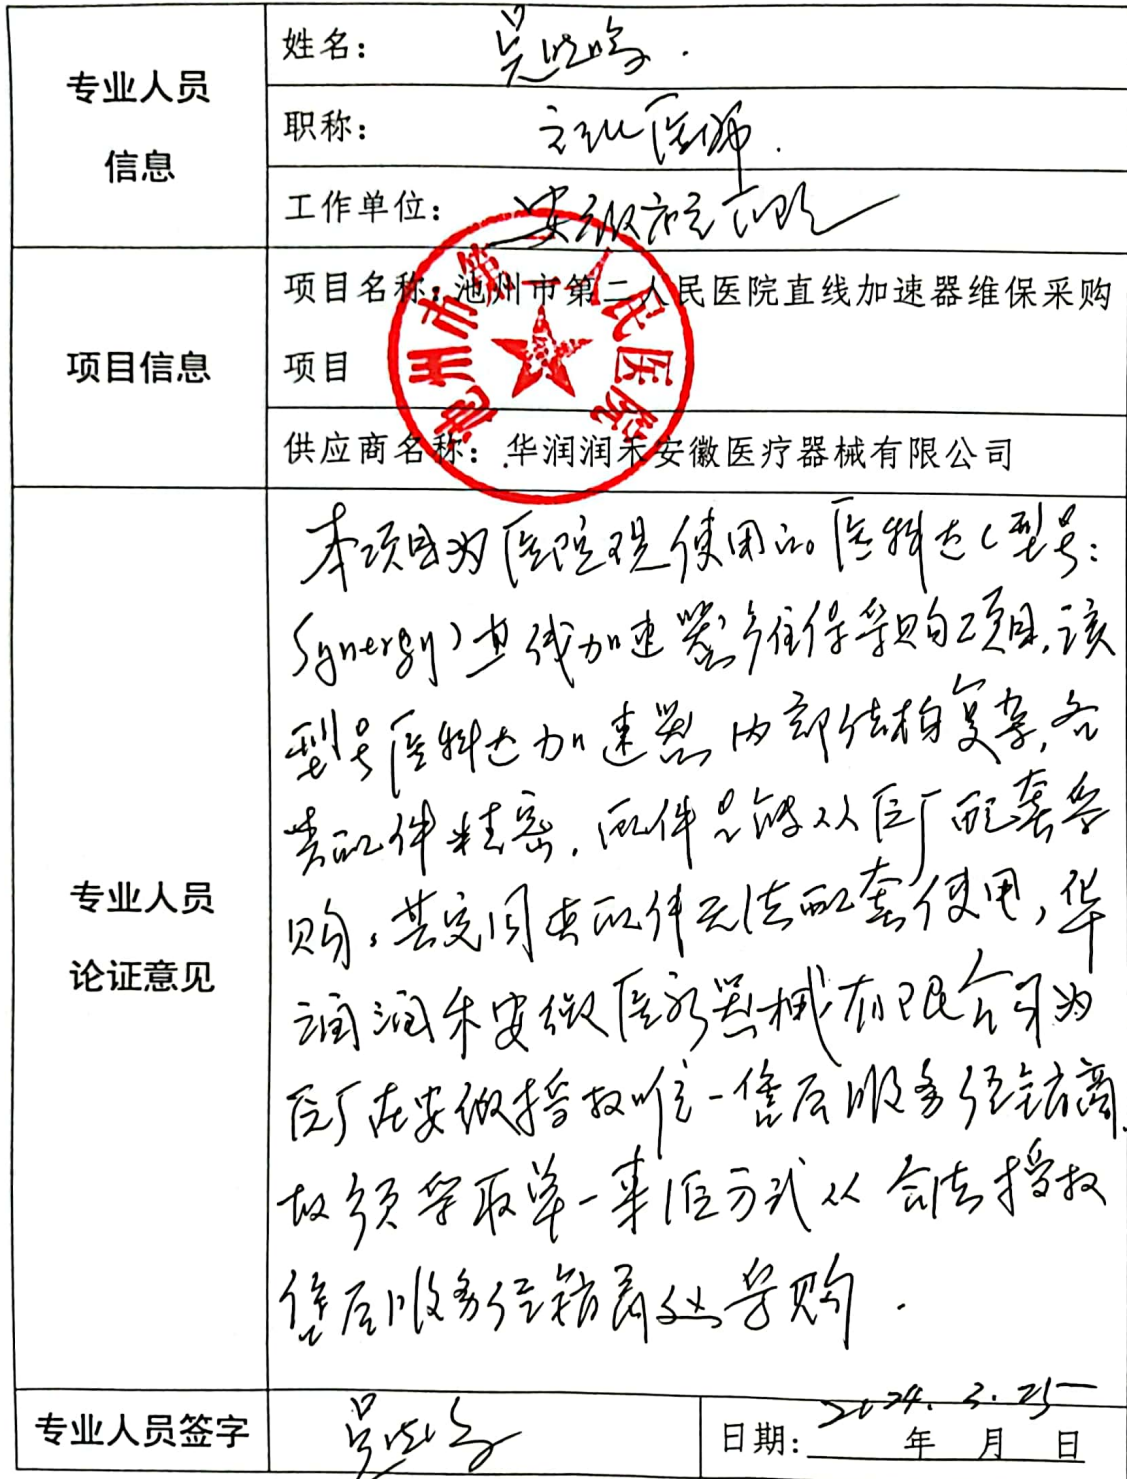 专业人员
信息
姓名：
职称： 主治医师.
工作单位： 安徽
项目信息
项目名称：池州市第二人民医院直线加速器维保采购
项目
供应商名称：华润润禾安徽医疗器械有限公司
池州市第二人民医院
专业人员
论证意见
本项目为医院现使用的医科达(型号：
Synergy)直线加速器维保采购项目,该
型号医科达加速器内部结构复杂,各
类配件精密,配件只能从原厂配套采
购,其它同类配件无法配套使用,华
润润禾安徽医疗器械有限公司为
原厂在安徽授权唯一售后服务经销商,
故须采取单一来源方式从合法授权
售后服务经销商处采购.
专业人员签字
日期： 2024.3.25
年 月 日